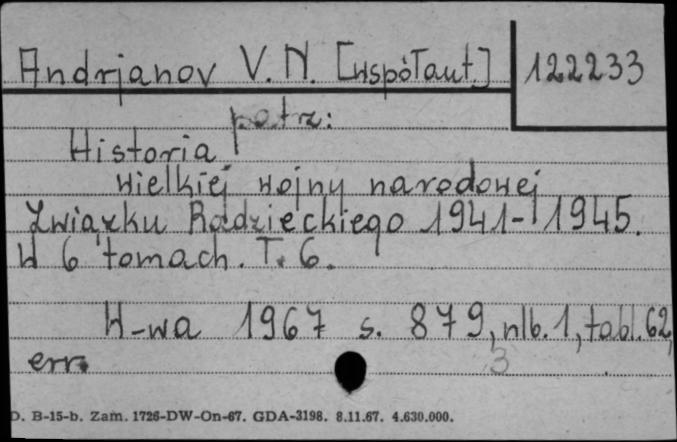 Andrjanov V. N. [współaut] 122233
patrz:
Historia
wielkiej wojny narodowej
Związku Radzieckiego 1941-1945.
W 6 tomach. T. 6.
W-wa 1967 s. 879, nlb. 1, tabl. 62,
err. 3
D. B-15-b. Zam. 1726-DW-On-67. GDA-3198. 8.11.67. 4.630.000.